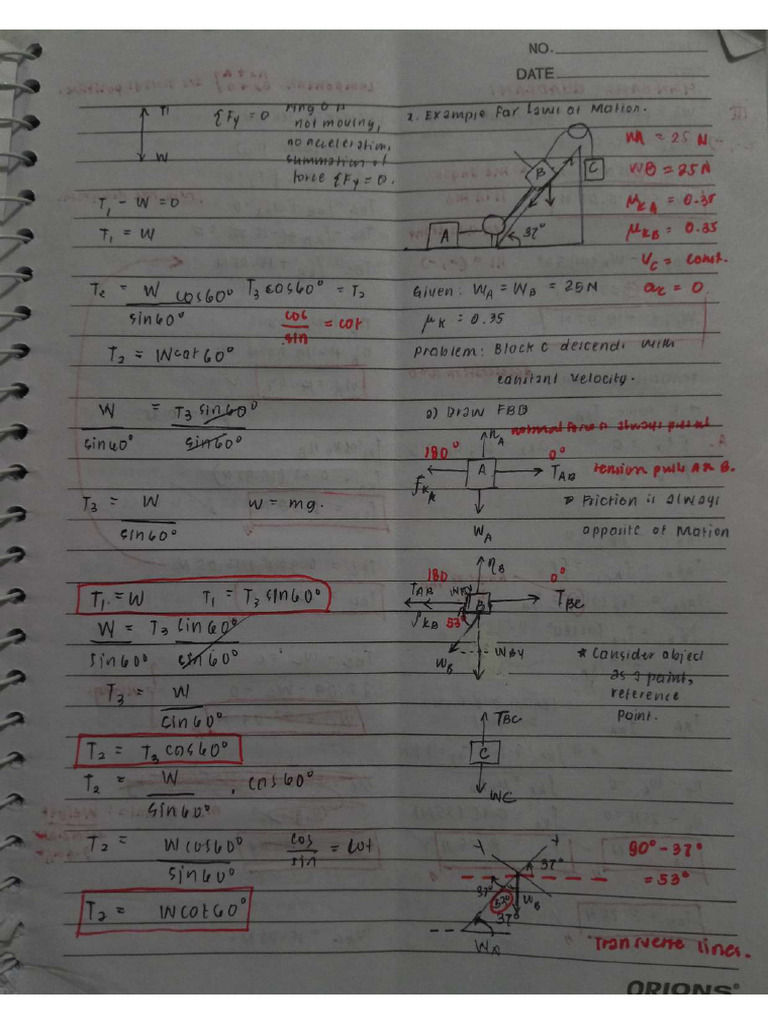 NO.
DATE
T1
W
ΣFy = 0
ring O is
not moving,
no acceleration,
summation of
force ΣFy = 0.
T1 - W = 0
T1 = W
T2 = W cos60° T3 cos60° = T2
sin60°
cos
sin
= cot
T2 = Wcot60°
W = T3 sin60°
sin60° sin60°
T3 = W
sin60°
W = mg.
T1 = W T1 = T3 sin60°
W = T3 sin60°
sin60° sin60°
T3 = W
sin60°
T2 = T3 cos60°
T2 = W . cos60°
sin60°
T2 = W cos60°
sin60°
cos
sin
= cot
T2 = Wcot60°
2. Example for Laws of Motion.
A
B
C
37°
WA = 25 N
WB = 25N
μKA = 0.35
μKB = 0.35
VC = const.
ac = 0
Given: WA = WB = 25N
μK = 0.35
Problem: Block C descends with
constant velocity.
a) Draw FBD
nA
normal force is always
180°
0°
A
fKA
TAB
tension pulls A & B.
WA
Friction is always
opposite of Motion
nB
180
0°
TAB
WBX
B
TBC
fKB
53°
WB
WBY
* Consider object
as a point,
reference
point.
TBC
C
WC
Y
X
37°
37°
53°
37°
WB
WA
90° - 37°
= 53°
Tranverse lines.
ORIONS